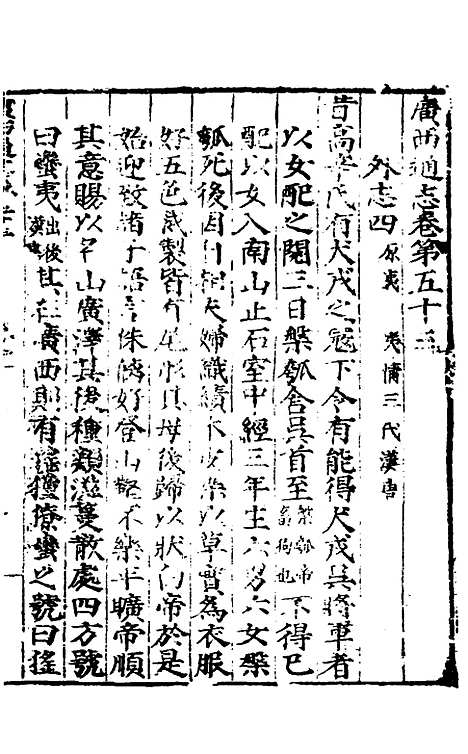 廣西通志卷第五十三
外志四 原夷 夷情三代漢唐
昔高辛氏有犬戎之寇下令有能得犬戎吳將軍者
以女配之閱三日槃瓠含吳首至槃瓠帝畜狗也不得已
配以女入南山止石室中經三年生六男六女槃
瓠死後因自相夫婦織績木皮染以草實為衣服
好五色裁製皆有尾形其母後歸以狀白帝於是
始迎致諸子語言侏𠌯好登山壑不樂平曠帝順
其意賜以名山廣澤其後種類滋蔓散處四方號
曰蠻夷出後漢書其在廣西郡有猺獞獠蠻之號曰猺